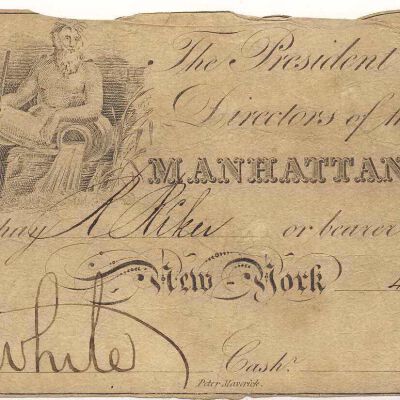 The President
Directors of th
MANHATTAN
pay R Riker or bearer
New-York 4
White
Cash.r
Peter Maverick.